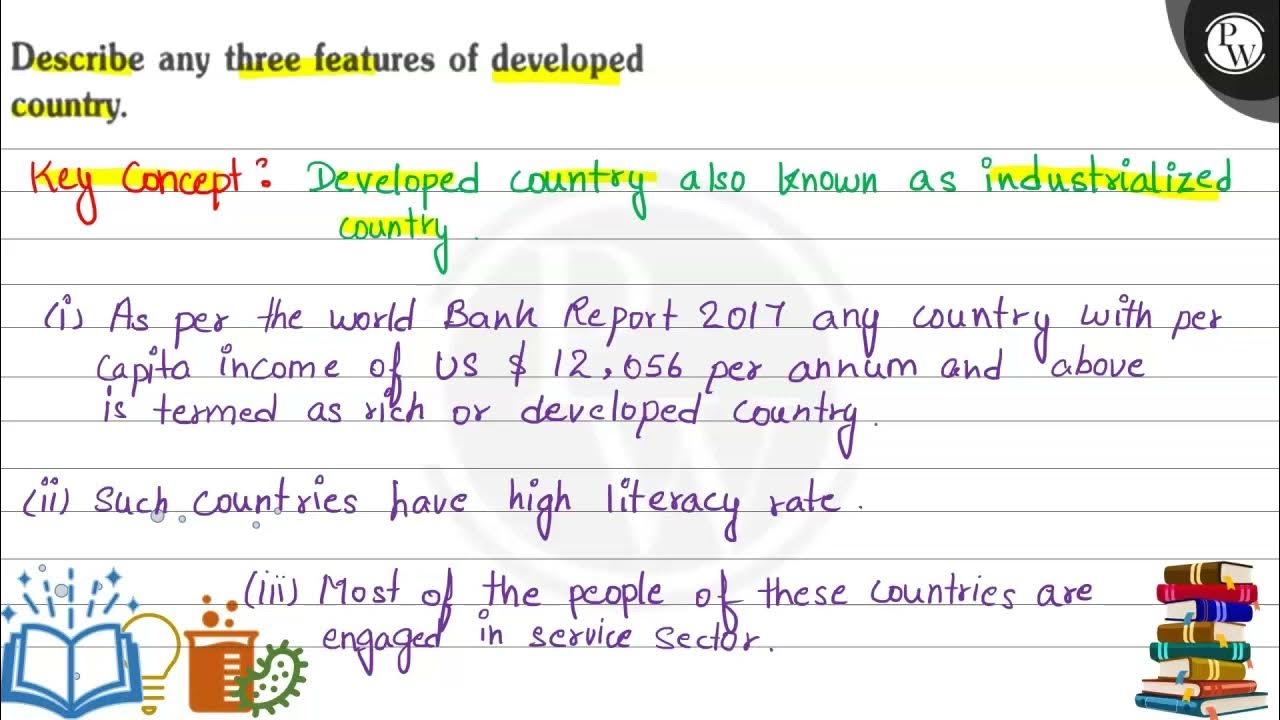 Describe any three features of developed
country.
PW
Key Concept: Developed country also known as industrialized
country.
(i) As per the world Bank Report 2017 any country with per
capita income of US $ 12,056 per annum and above
is termed as rich or developed country.
(ii) Such countries have high literacy rate.
(iii) Most of the people of these countries are
engaged in service sector.